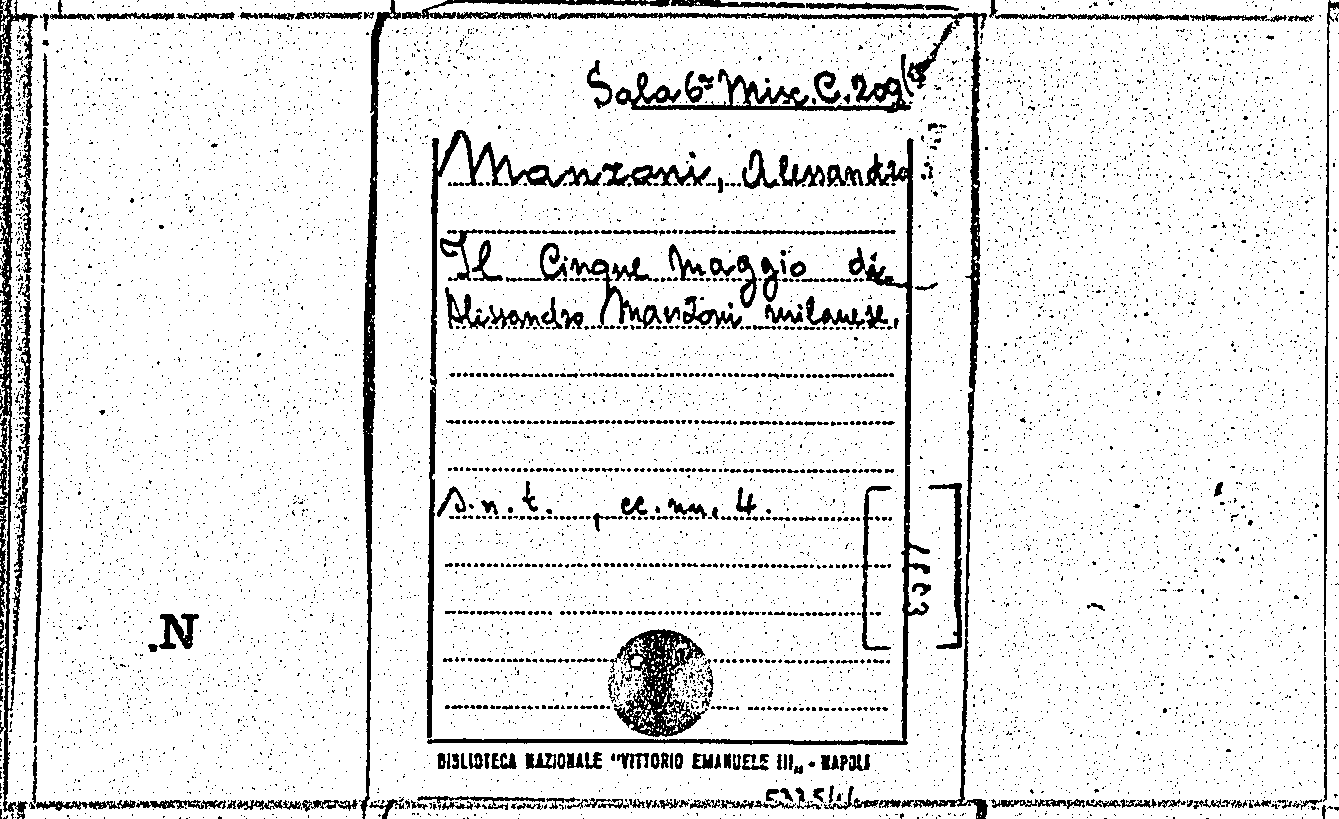 Sala 6ª Misc. C. 209(
Manzoni, Alessandro
Il Cinque Maggio di
Alessandro Manzoni milanese.
s.n.t. , cc.nn. 4.
.N
BIBLIOTECA NAZIONALE "VITTORIO EMANUELE III„ - NAPOLI